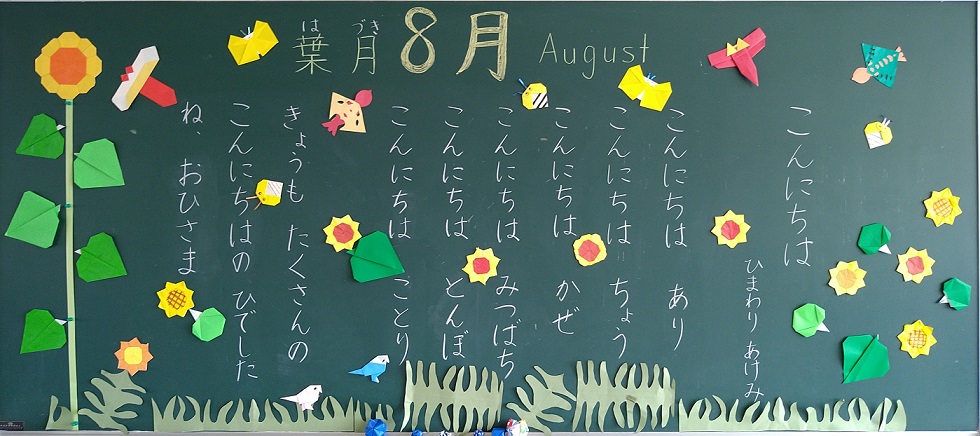 葉月 8月 August
はづき
こんにちは
ひまわり あけみ
こんにちは あり
こんにちは ちょう
こんにちは かぜ
こんにちは みつばち
こんにちは とんぼ
こんにちは ことり
きょうも たくさんの
こんにちはの ひでした
ね、おひさま